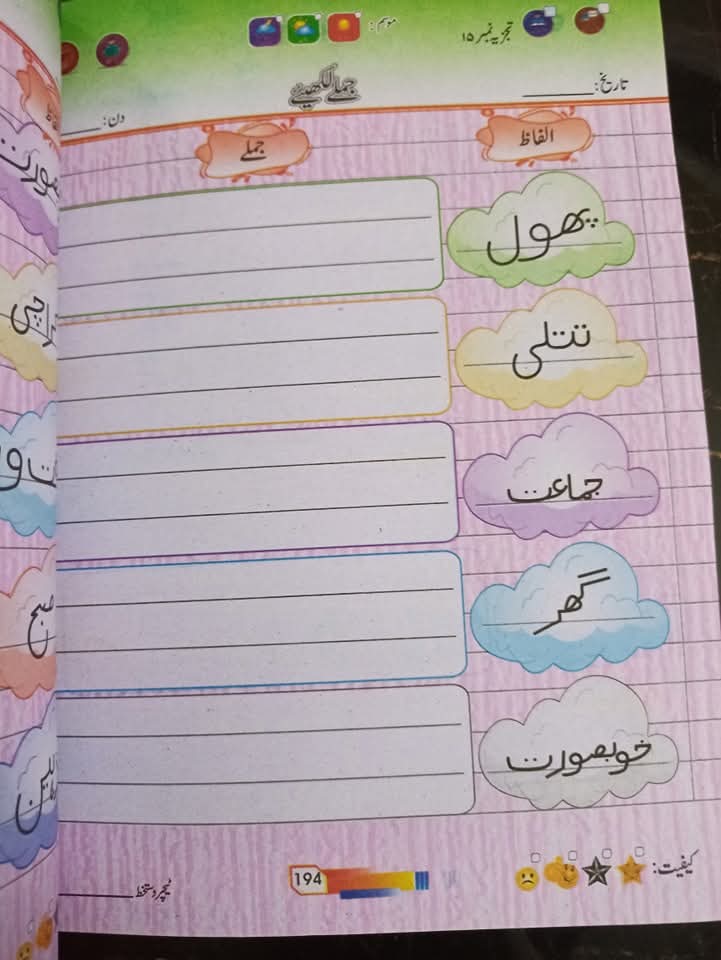 موسم:
تجزیہ نمبر ۱۵
تاریخ:
دن:
جملے لکھیے
الفاظ
جملے
پھول
تتلی
جماعت
گھر
خوبصورت
کیفیت:
194
ٹیچر دستخط
صبح